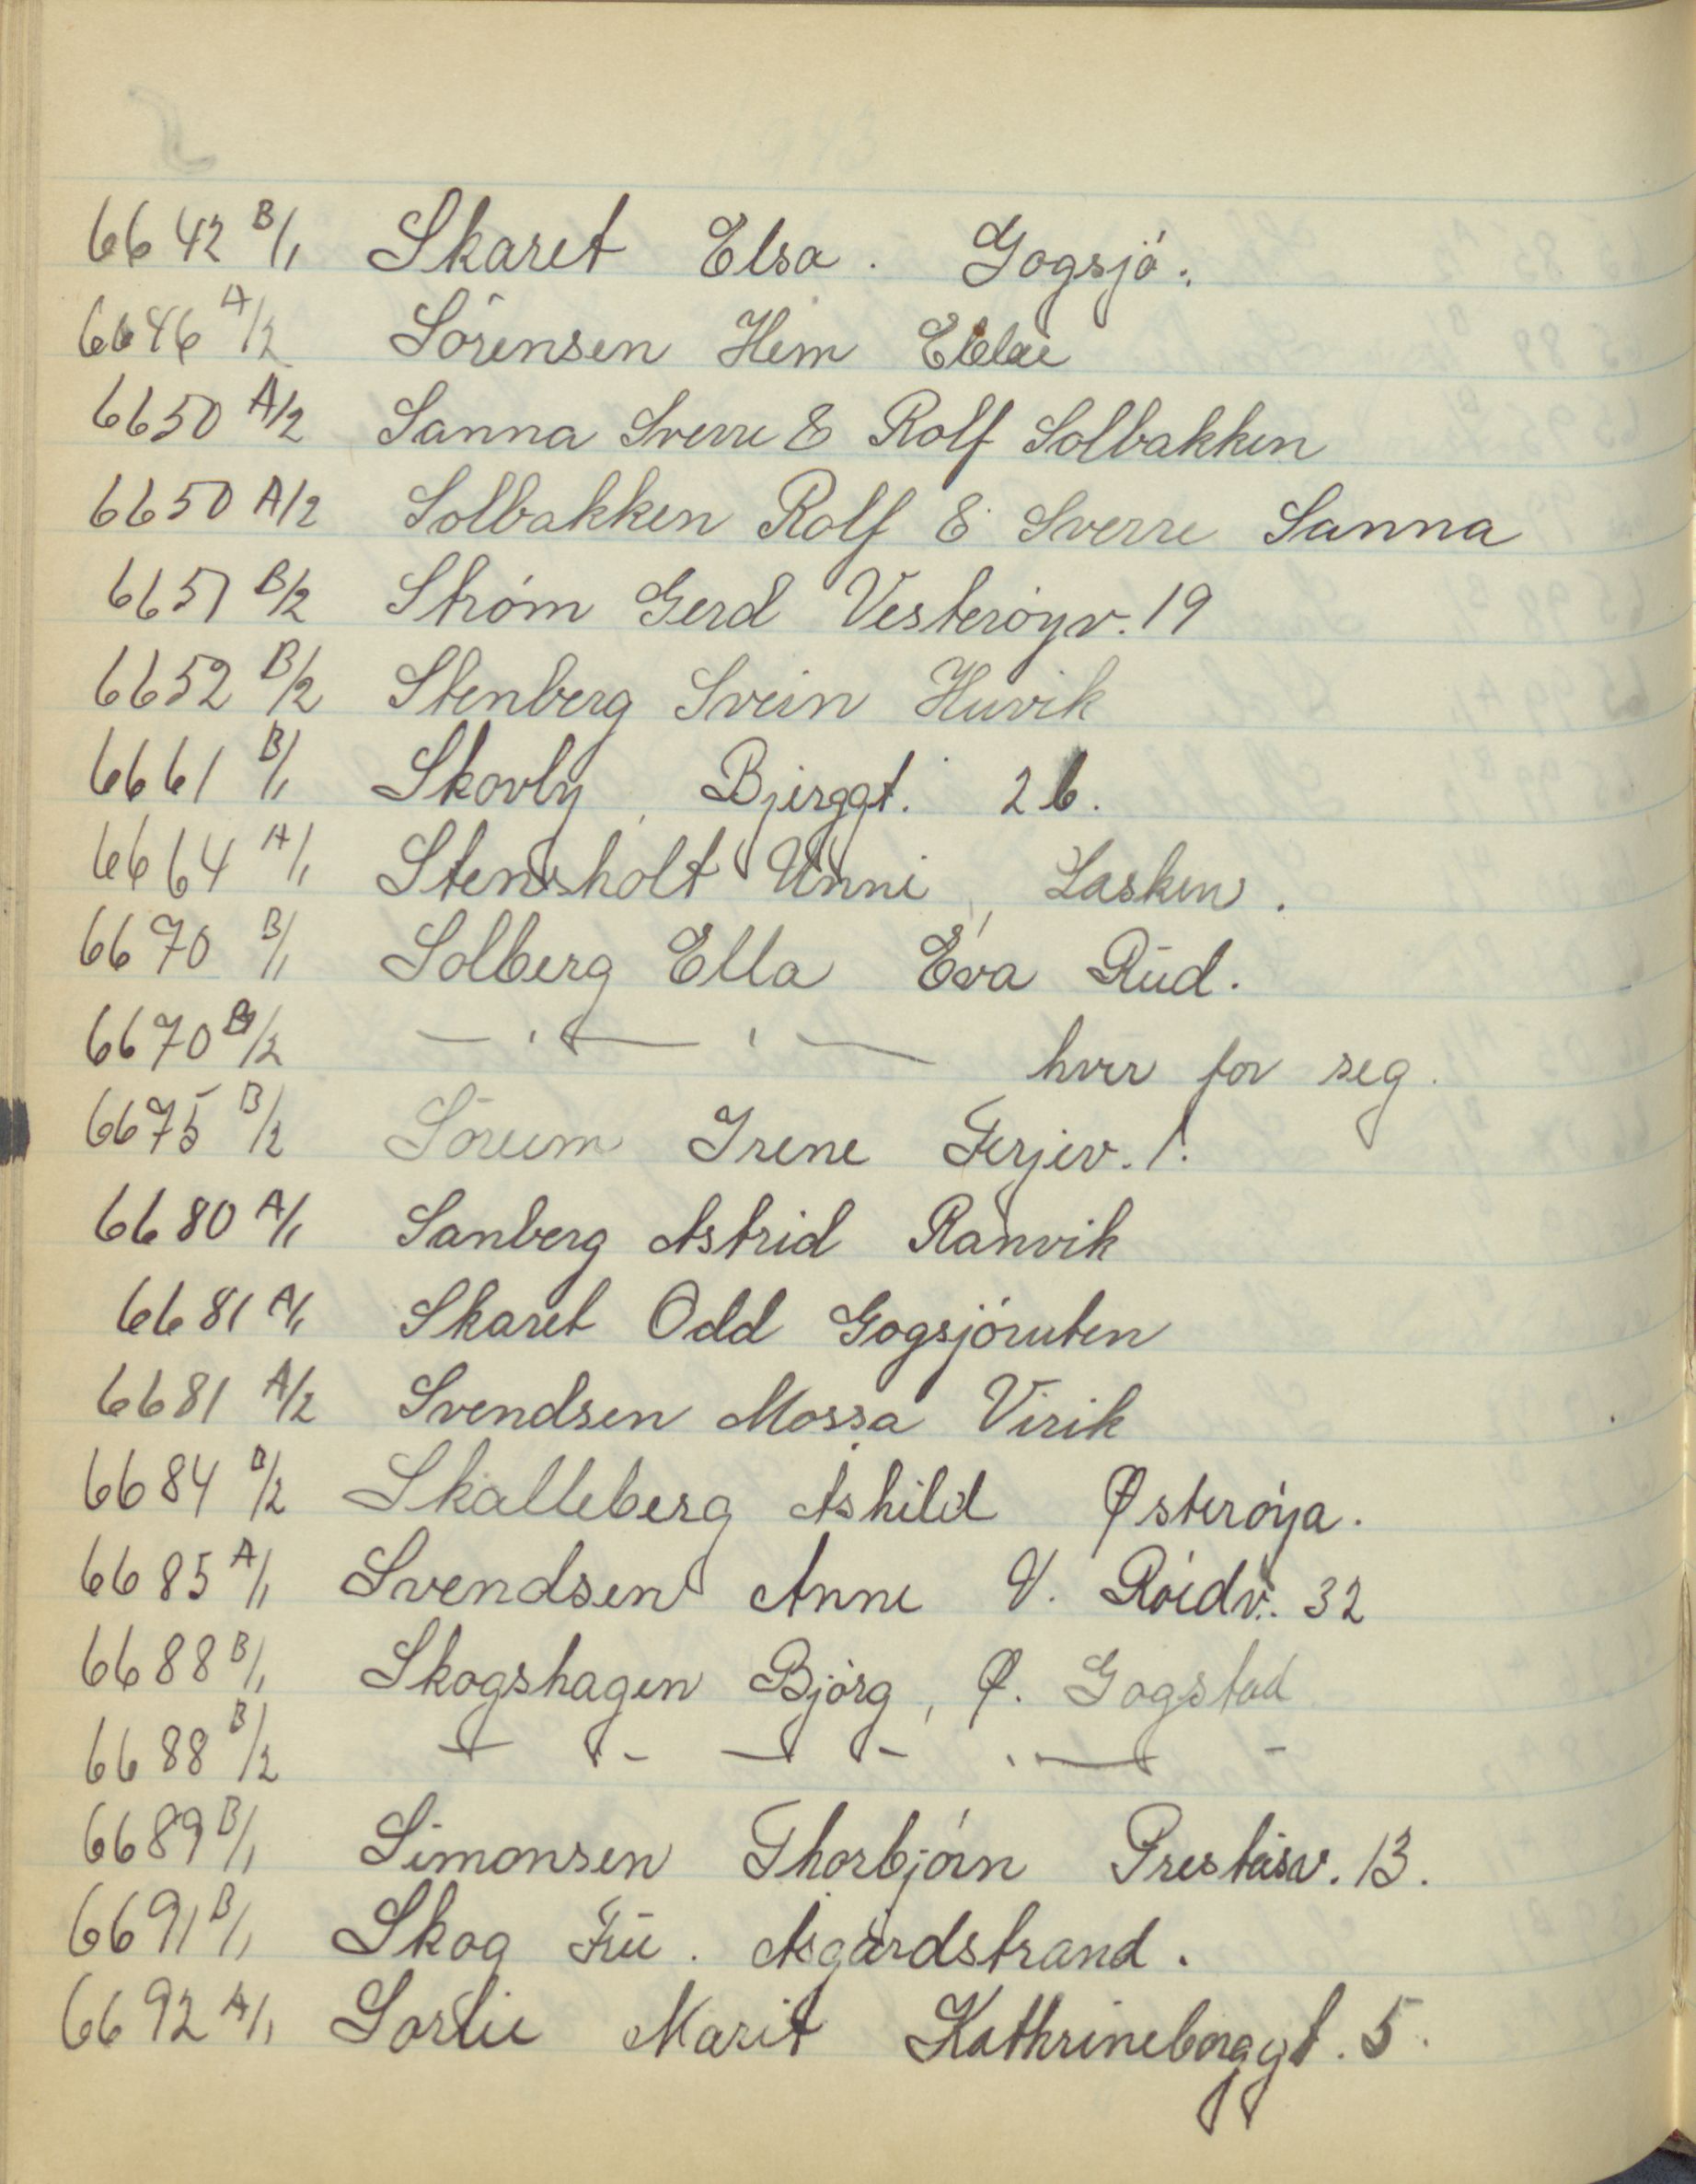 6642 B/1 Skaret Elsa. Gogsjó.
6646 A/2 Sórensen Hem
6650 A/2 Sanna Sverre & Rolf Solbakken
6650 A/2 Solbakken Rolf & Sverre Sanna
6651 B/2 Stróm Gerd Vesteróyv. 19
6652 B/2 Stenberg Svein Huvik
6661 B/1 Skovly, Bjerggt. 26.
6664 A/1 Stensholt Unni, Lasken.
6670 B/1 Solberg Ella Eva Rud.
6670 B/2 — ' — ' — hver for seg.
6675 B/2 Sórum Irene Ferjev. 1.
6680 A/1 Sanberg Astrid Ranvik
6681 A/1 Skaret Odd Gogsjóruten
6681 A/2 Svendsen Mossa Virik
6684 B/2 Skalleberg Åshild Østeróya.
6685 A/1 Svendsen Anne V. Róidv. 32
6688 B/1 Skogshagen Bjórg, Ø. Gogstad
6688 B/2 — - — - — -
6689 B/1 Simonsen Thorbjórn Preståsv. 13.
6691 B/1 Skog Fru. Åsgårdstrand.
6692 A/1 Sorlie Marit Kathrineborggt. 5.